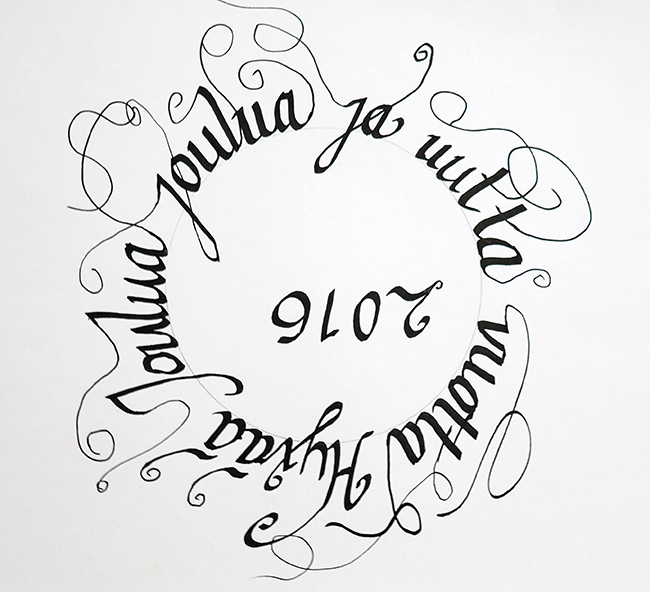 Hyvää Joulua joulua ja uutta vuotta
2016